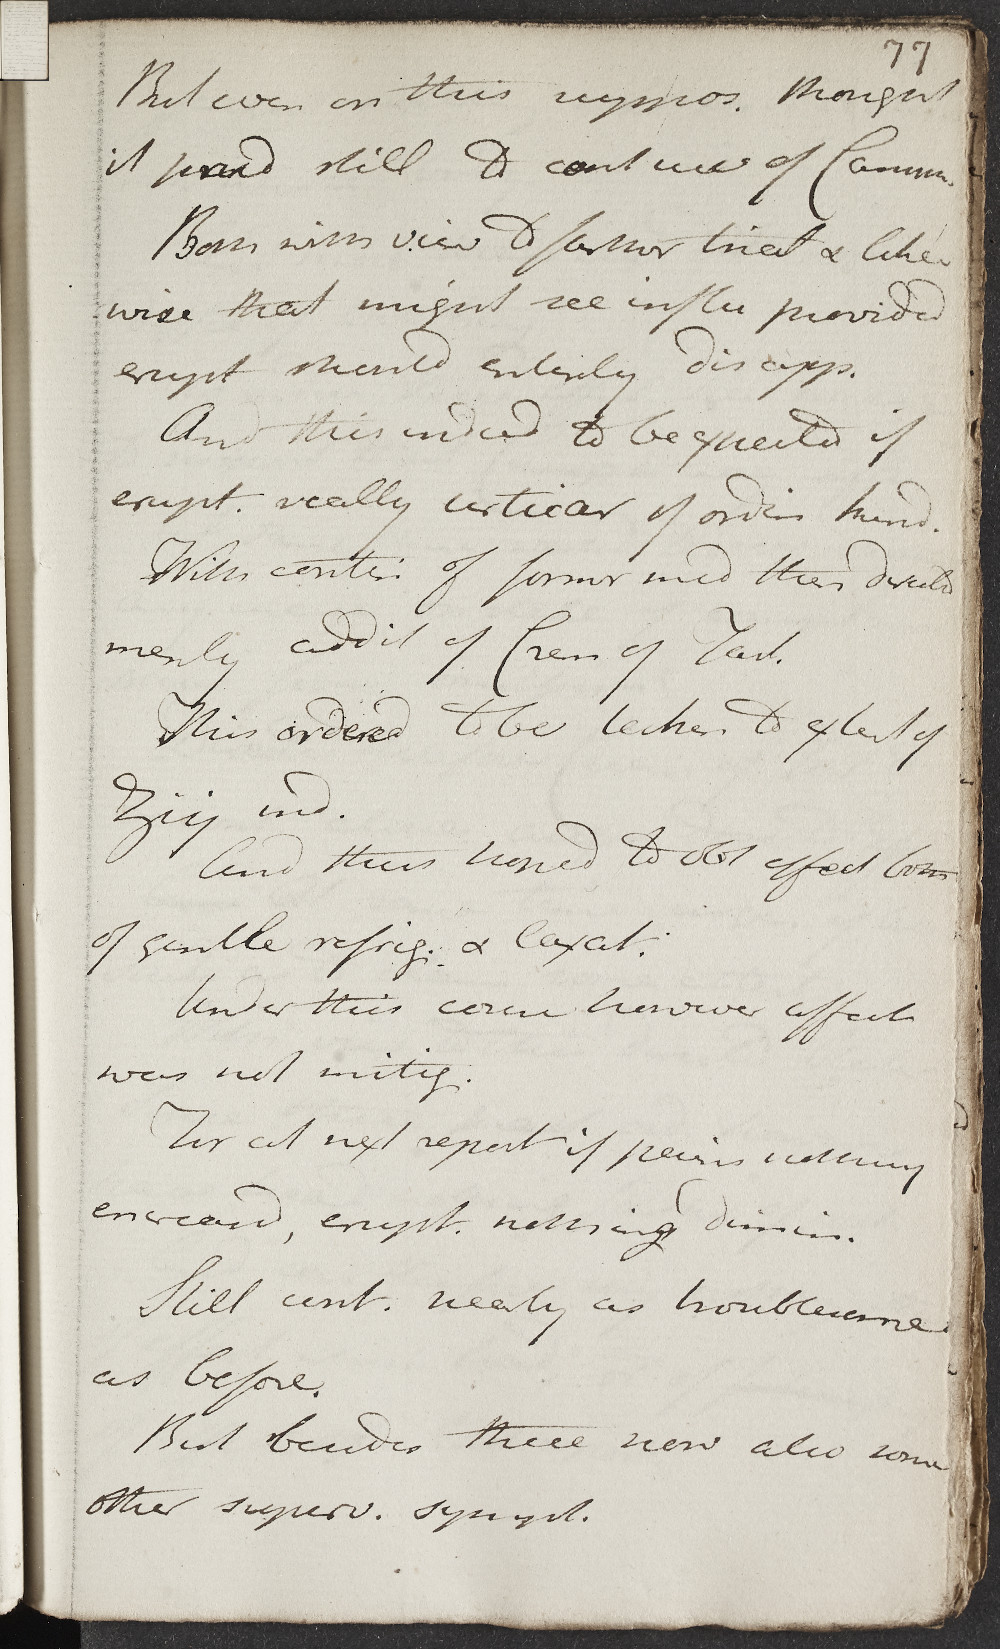 77
But even on this suppos. thought
it prud still to continue of Camm.
Both with view to farther trial & like
wise that might see influ provided
erupt should entirely disapp.
And this indeed to be expected if
erupt. really urticar of ordin kind.
With contin. of former med then directed
merly addit of Crem of Tart.
This ordered to be taken to extent of
ʒiij ind.
And thus hoped to obt effect both
of gentle refrig. & laxat.
Under this course however affect
was not mitig.
For at next report if pains nothing
encreased, erupt. nothing dimin.
Still cont. nearly as troublesome
as before.
But besides these now also some
other superv. sympt.